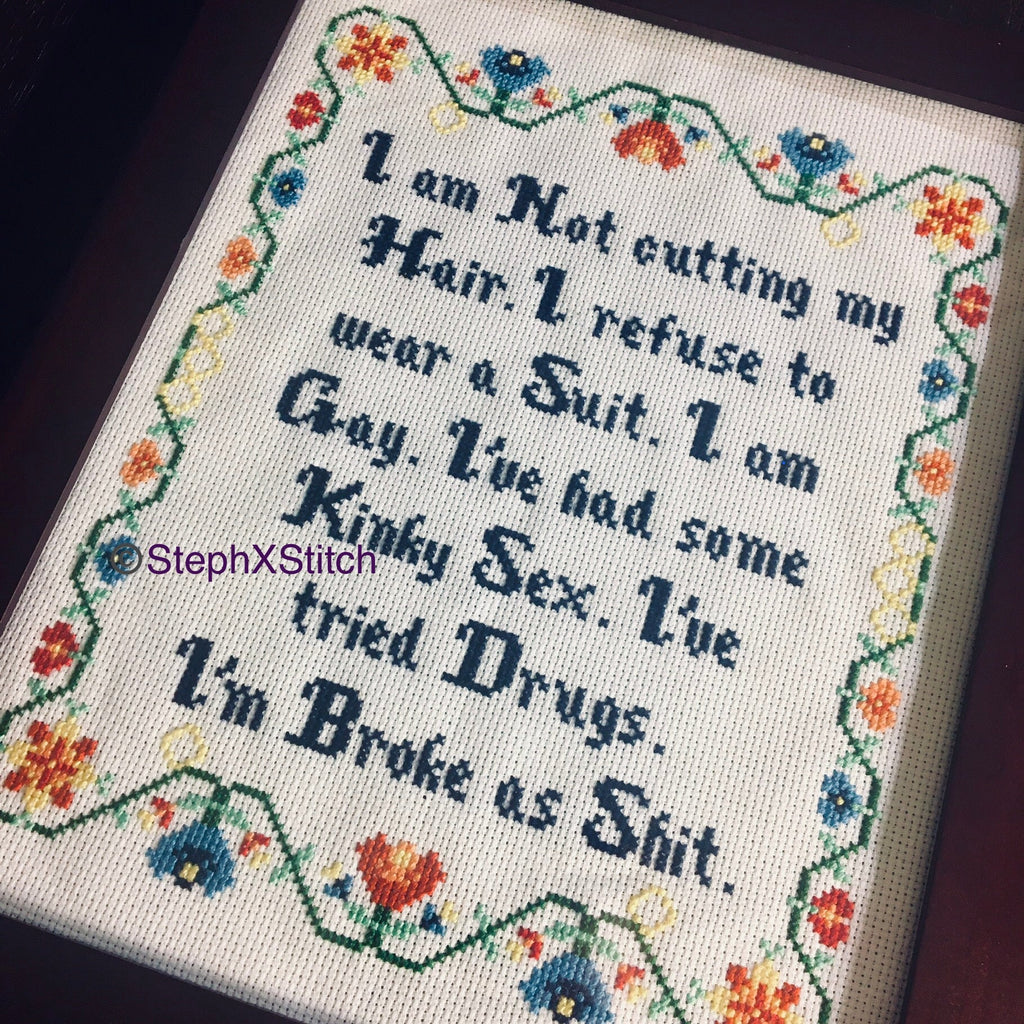 I am Not cutting my
Hair. I refuse to
wear a Suit. I am
Gay. I've had some
Kinky Sex. I've
tried Drugs.
I'm Broke as Shit.
©StephXStitch